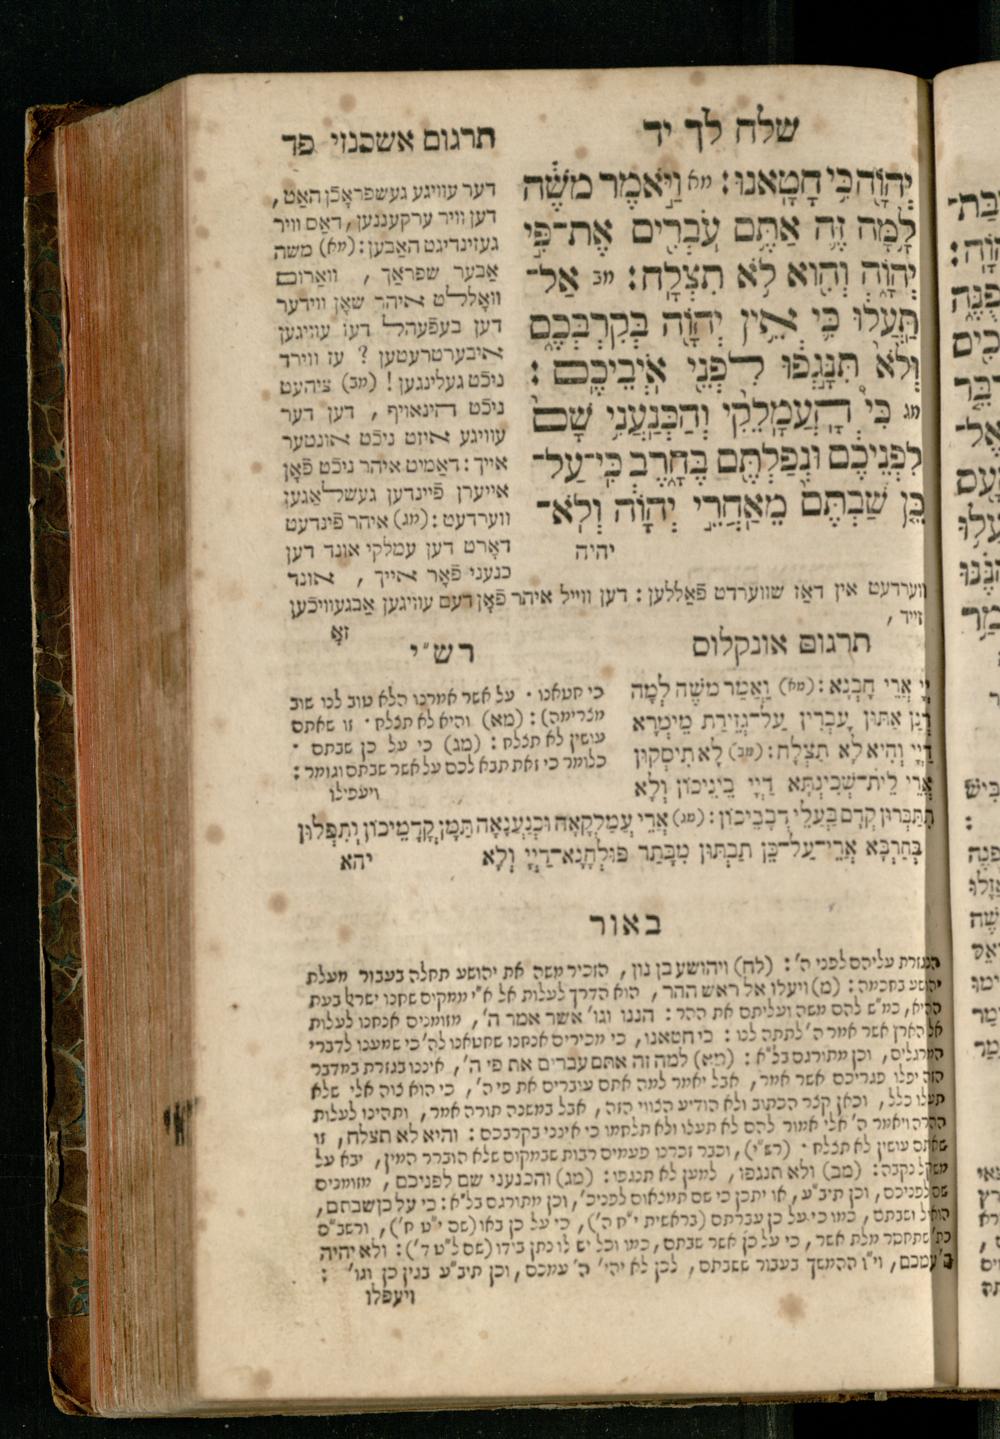 שלח לך יד
תרגום אשכנזי פד
יְהוָֹה כִּי חָטָאנוּ : מא וַיֹּאמֶר מֹשֶׁה
לָמָּה זֶּה אַתֶּם עֹבְרִים אֶת־פִּי
יְהוָֹה וְהִוא לֹא תִצְלָח : מב אַל־
תַּעֲלוּ כִּי אֵין יְהוָֹה בְּקִרְבְּכֶם
וְלֹא תִּנָּגְפוּ לִפְנֵי אֹיְבֵיכֶם :
מג כִּי הָעֲמָלֵקִי וְהַכְּנַעֲנִי שָׁם
לִפְנֵיכֶם וּנְפַלְתֶּם בֶּחָרֶב כִּי־עַל־
כֵּן שַׁבְתֶּם מֵאַחֲרֵי יְהוָֹה וְלֹא־
יהיה
דער עוויגע געשפראָכן האַט ,
דען וויר ערקעננען , דאַס וויר
געזינדיגט האַבען : (מא) משה
אַבער שפראַך , וואַרום
וואָללט איהר שאָן ווידער
דען בעפֿעהל דעז עוויגען
איבערטרעטען ? עז ווירד
ניכֿט געלינגען ! (מב) ציהעט
ניכֿט הינאויף , דען דער
עוויגע איזט ניכֿט אונטער
אייך : דאַמיט איהר ניכֿט פֿאָן
אייערן פֿיינדען געשלאַגען
ווערדעט : (מג) איהר פֿינדעט
דאָרט דען עמלקי אונד דען
כנעני פֿאָר אייך , אונד
ווערדעט אין דאז שווערדט פֿאַללען : דען ווייל איהר פֿאָן דעם עוויגען אַבגעוויכֿען
זייד ,
זאָ
תרגום אונקלוס
יְיָ אֲרֵי חָבְנָא : (מא) וַאֲמַר מֹשֶׁה לְמָה
דְנַן אַתּוּן עָבְרִין עַל־גְּזֵירַת מֵימְרָא
דַיְיָ וְהִיא לָא תִצְלַח : (מב) לָא תִיסְקוּן
אֲרֵי לֵית־שְׁכִינְתָּא דַיְיָ בֵּינֵיכוֹן וְלָא
תִתַּבְּרוּן קֳדָם בַּעֲלֵי דְבָבֵיכוֹן : (מג) אֲרֵי עֲמַלְקָאָה וּכְנַעֲנָאָה תַּמָּן קֳדָמֵיכוֹן וְתִפְּלוּן
בְּחַרְבָּא אֲרֵי־עַל־כֵּן תַּבְתּוּן מִבָּתַר פּוּלְחָנָא־דַיְיָ וְלָא
יהא
רש"י
כי חטאנו · על אשר אמרנו הלא טוב לנו שוב
מצרימה) : (מא) והיא לא תצלח · זו שאתם
עושין לא תצלח : (מג) כי על כן שבתם ·
כלומר כי זאת תבא לכם על אשר שבתם וגומר :
ויעפילו
באור
הנגזרת עליהם לפני ה' : (לח) ויהושע בן נון , הזכיר משה את יהושע תחלה בעבור מעלת
יהושע בחכמה : (מ) ויעלו אל ראש ההר , הוא הדרך לעלות אל א"י ממקום שחנו ישראל בעת
ההיא , כמ"ש להם משה ועליתם את ההר : הננו וגו' אשר אמר ה' , מזומנים אנחנו לעלות
אל הארץ אשר אמר ה' לתתה לנו : כי חטאנו , כי מכירים אנחנו שחטאנו לה' כי שמענו לדברי
המרגלים , וכן מתורגם בל"א : (מא) למה זה אתם עברים את פי ה' , איננו בגזרת במדבר
הזה יפלו פגריכם אשר אמר , אבל יאמר למה אתם עוברים את פי ה' , כי הוא צוה אלי שלא
תעלו כלל , וכאן קצר הכתוב ולא הודיע הצווי הזה , אבל במשנה תורה אמר , ותהינו לעלות
ההרה ויאמר ה' אלי אמור להם לא תעלו ולא תלחמו כי אינני בקרבכם : והיא לא תצלח , זו
שאתם עושין לא תצלח · (רש"י) , וכבר זכרנו פעמים רבות שבמקום שלא הוברר המין , יבא על
משקל נקבה : (מב) ולא תנגפו , למען לא תנגפו : (מג) והכנעני שם לפניכם , מזומנים
שם לפניכם , וכן תיב"ע , או יתכן כי שם תמצאום לפניכ' , וכן מתורגם בל"א : כי על כן שבתם ,
הואיל ושבתם , כמו כי על כן עברתם (בראשית י"ח ה') , כי על כן באו (שם י"ט ח') , ורשב"ם
כת' שתחסר מלת אשר , כי על כן אשר שבתם , כמו וכל יש לו נתן בידו (שם ל"ט ד') : ולא יהיה
ה' עמכם , וי"ו ההמשך בעבור ששבתם , לכן לא יהי' ה' עמכם , וכן תיב"ע בגין כן וגו' :
ויעפלו